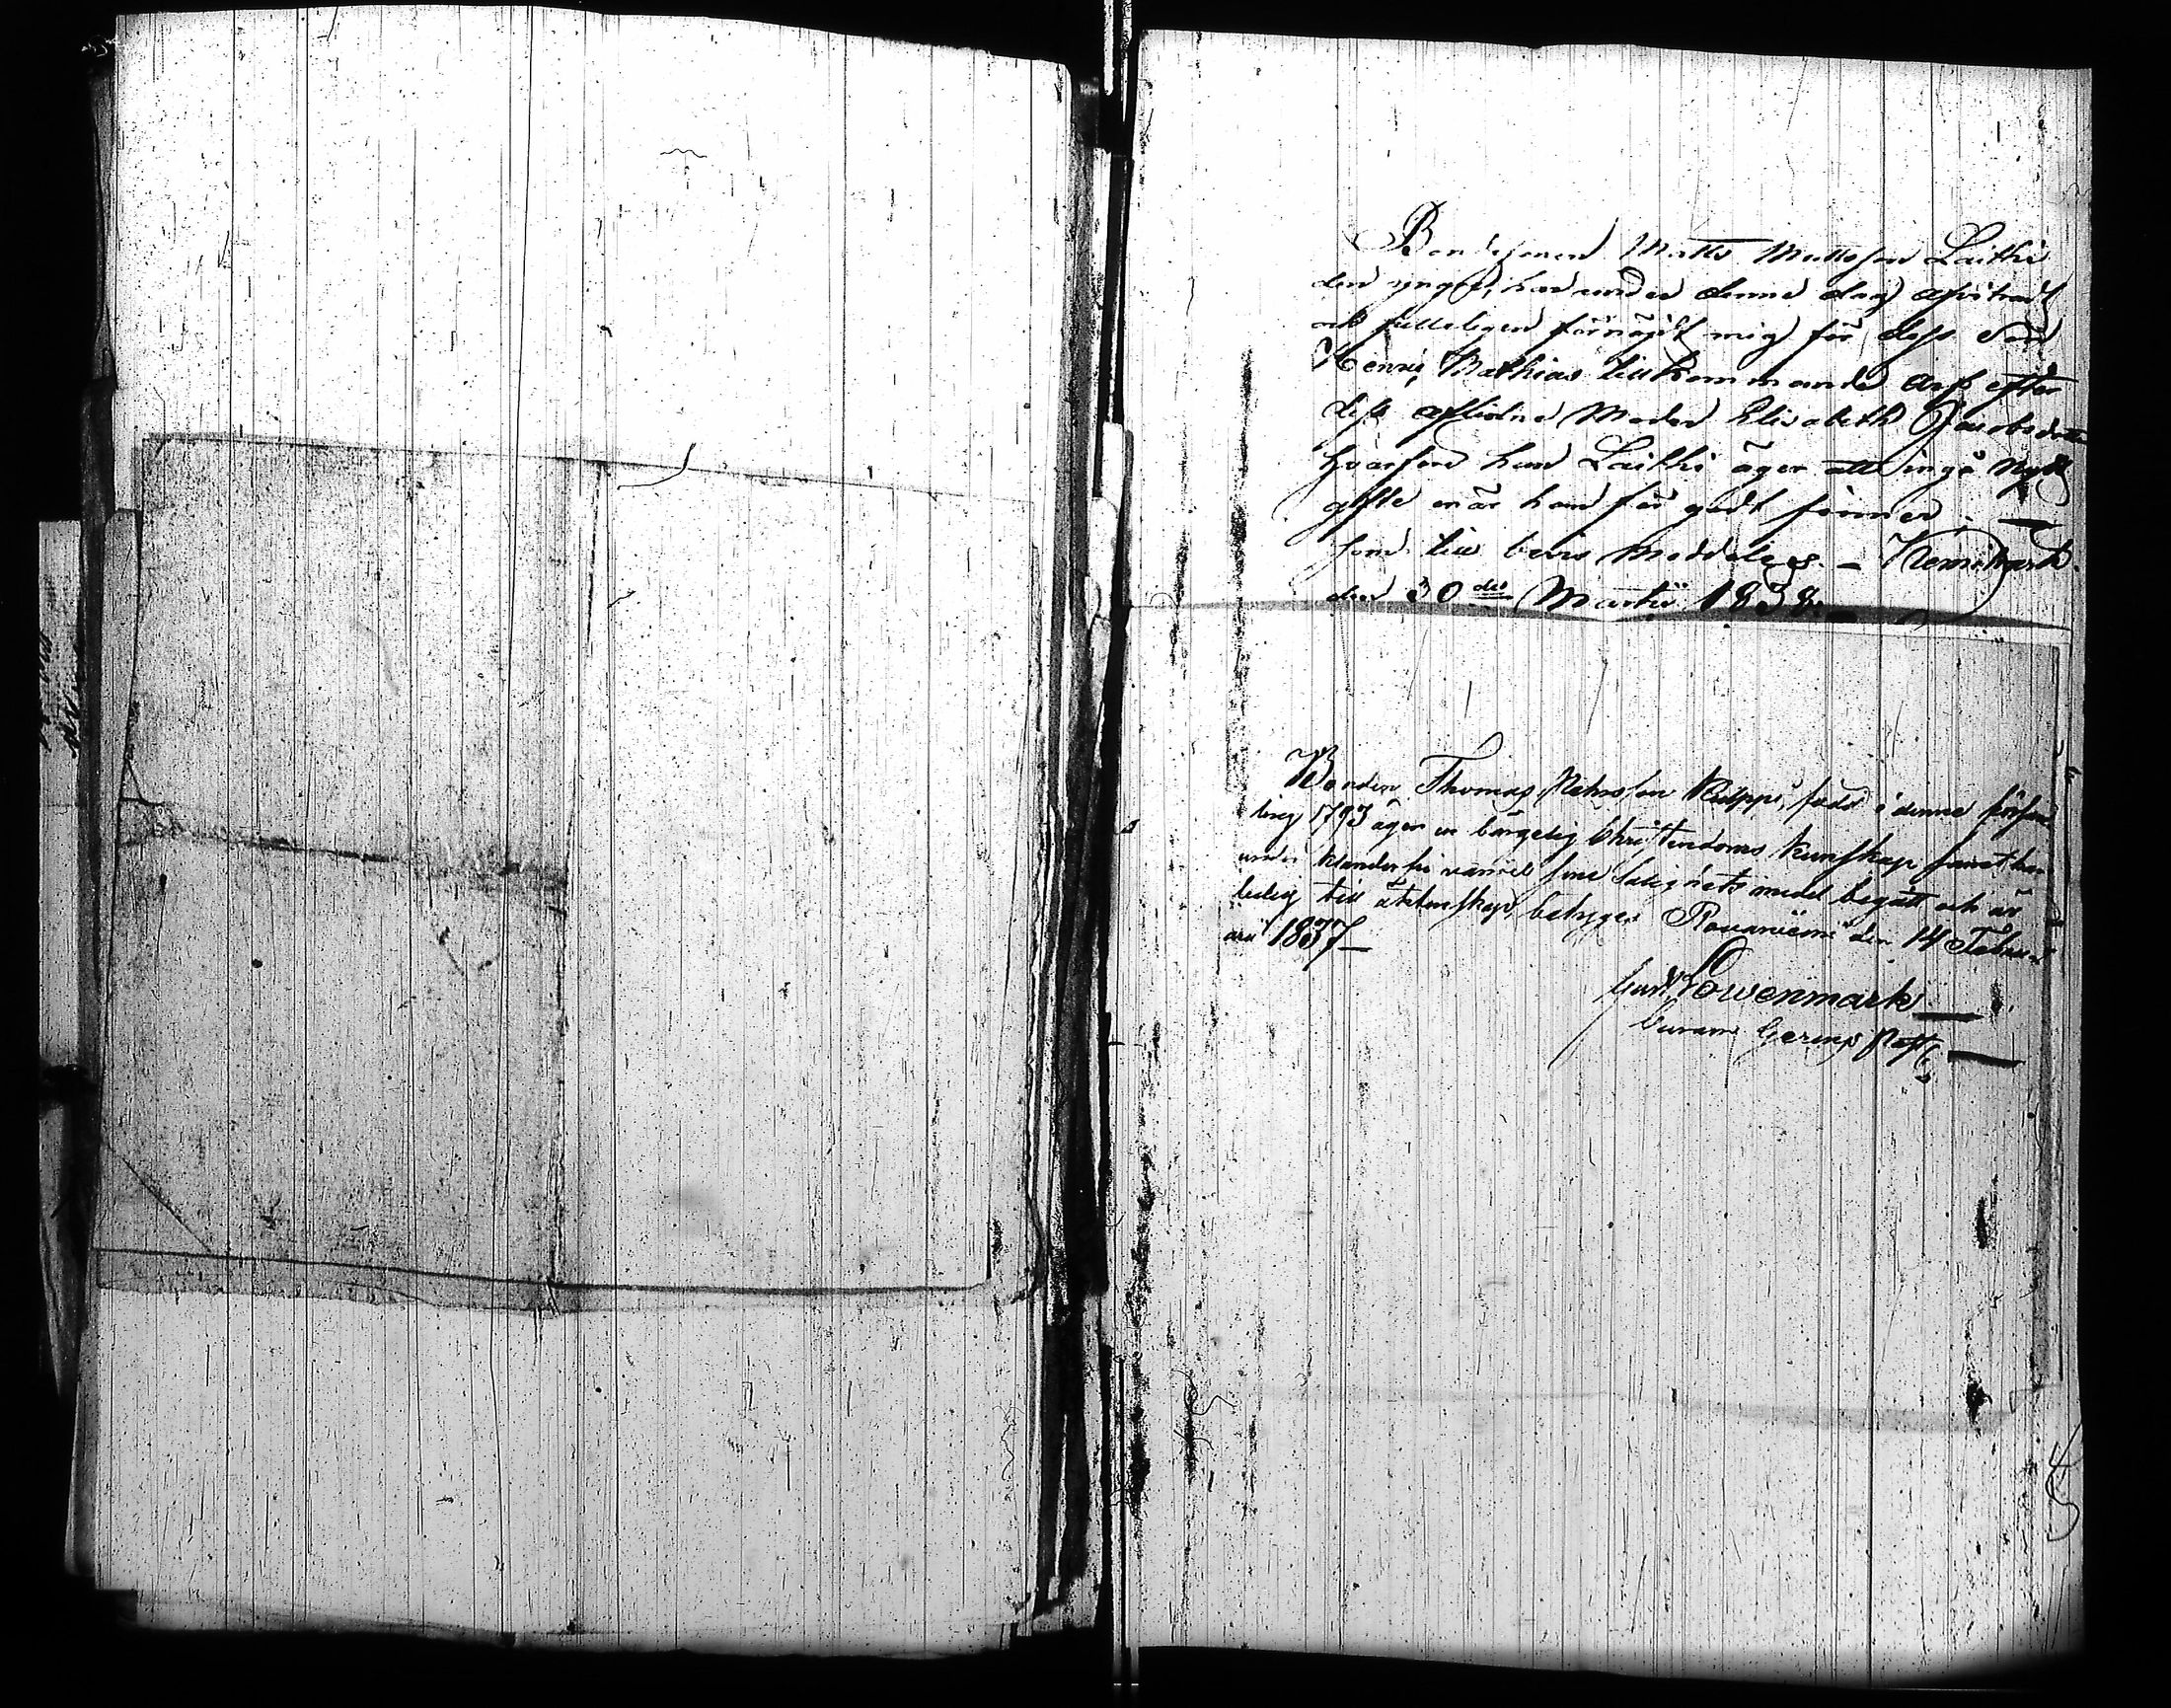 Bondesonen Matts Mattsson Laithi
den yngre, har under denne dag afvitrat
och fulleligen förnöjdt mig för dess Son
Henric Mathias tillkommande arf efter
dess aflidne Moder Elisabeth Jacobsdotter
hvarföre han Laithi äger att ingå nytt
gifte när han för godt finner. —
som till bevis meddeles. — Kemiträsk
den 30 de Martii 1838. —
Bonden Thomas Mattsson Kulppi, född i denne försam
ling 1793 äger en börgelig Christendoms kunskap samt har
under klanderfri vandel sine salighets medel begått och är
ledig till äktenskap, betyges Rovaniemi den 14 Februari
1837 —
Lowenmark —